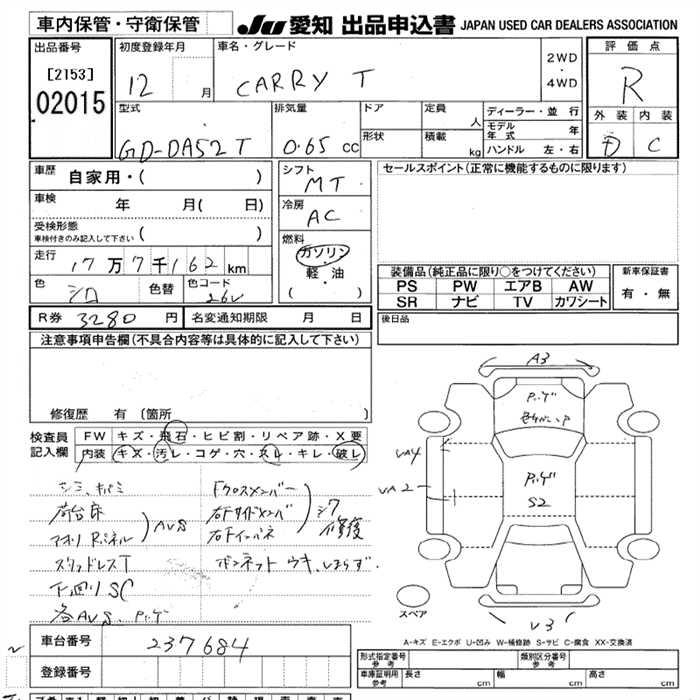 車内保管・守衛保管
JU 愛知 出品申込書 JAPAN USED CAR DEALERS ASSOCIATION
出品番号
[2153]
02015
初度登録年月
12 月
車名・グレード
CARRY T
2WD
・
4WD
評価点
R
外装 内装
D C
型式
GD-DA52T
排気量
0.65 cc
ドア
形状
定員
人
積載
kg
ディーラー・並行
モデル年式 年
ハンドル 左・右
車歴 自家用・( )
車検 年 月( 日)
受検形態
車検付きのみ記入して下さい ( )
走行 17万7千162km
色 シロ 色替 色コード 26U
シフト
MT
冷房
AC
燃料
ガソリン
・
軽・油
( )
セールスポイント(正常に機能するものに限ります)
装備品(純正品に限り○をつけてください)
PS PW エアB AW
SR ナビ TV カワシート
新車保証書
有・無
R券 3280 円 名変通知期限 月 日
後日品
注意事項申告欄(不具合内容等は具体的に記入して下さい)
修復歴 有 (箇所 )
検査員
記入欄
FW キズ・飛石・ヒビ割・リペア跡・X要
内装 キズ・汚レ・コゲ・穴・スレ・キレ・破レ
荷台床
アオリ Rパネル
AUS
スリッドレスT
下回りSC
各AUS、P、ゲ
Fクロスメンバー
右Fサイドメンバ
右Fインパネ
シワ
修復
ボンネット ウキ、しまらず
A3
P、ゲ
UA4
UA2
P、ゲ
S2
U3
スペア
A-キズ E-エクボ U-凹み W-補修跡 S-サビ C-腐食 XX-交換済
車台番号 237684
登録番号
形式指定番号
参考
類別区分番号
参考
車庫証明用
参考
長さ cm 幅 cm 高さ cm